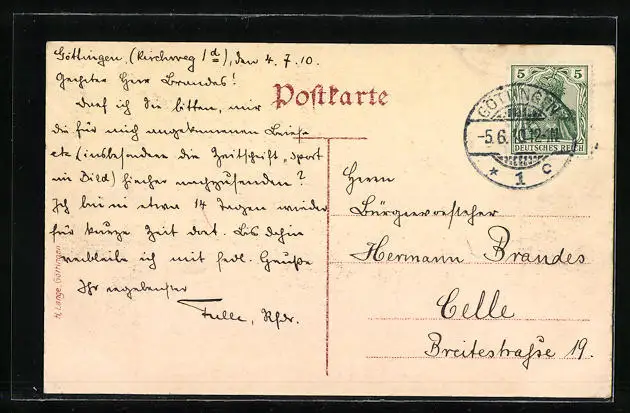 Göttingen, (Kirchweg 1d), den 4.7.10.
Geehrter Herr Brandes!
Darf ich Sie bitten, mir
die für mich angekommenen Briefe
etc (insbesondere die Zeitschrift, Sport
im Bild) hierher nachzusenden?
Ich bin in etwa 14 Tagen wieder
für kurze Zeit dort. Bis dahin
verbleibe ich mit frdl. Gruße
Ihr ergebenster
Rfdr.
H. Lange, Göttingen
Postkarte
5 5
DEUTSCHES REICH
GÖTTINGEN
-5.6.10.12-1N
* 1 c
Herrn
Bürgervorsteher
Hermann Brandes
Celle
Breitestraße 19.